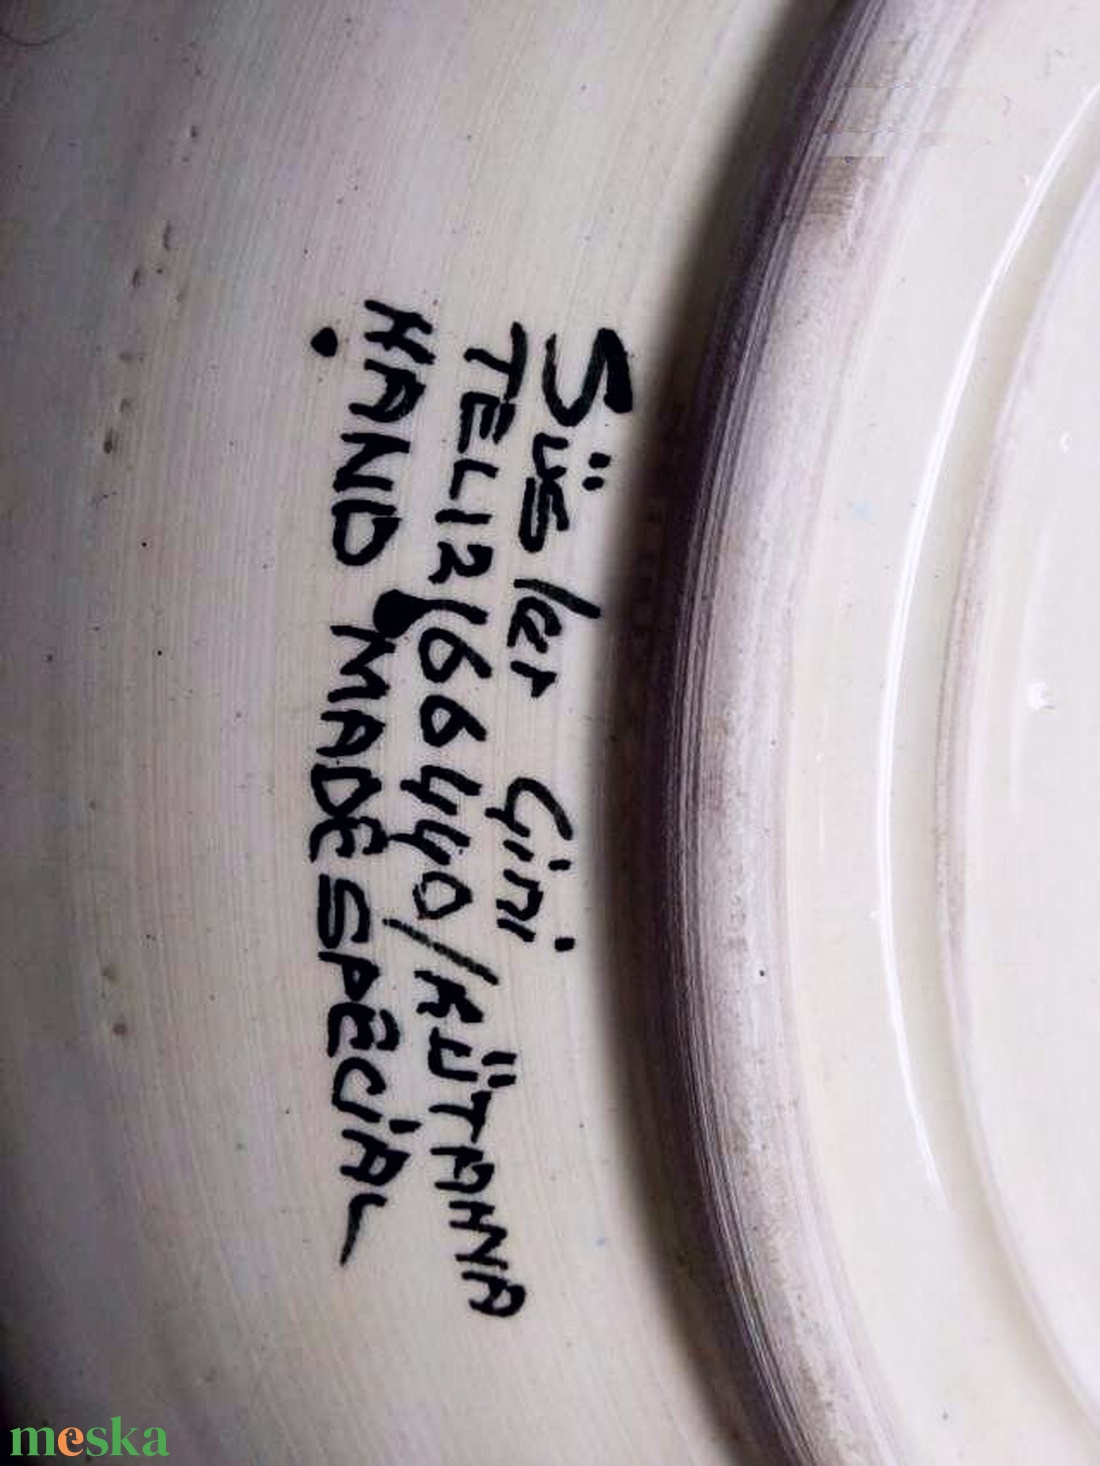 Süsler Çini
TEL12166440/KÜTAHYA
HAND MADE SPECİAL
meska